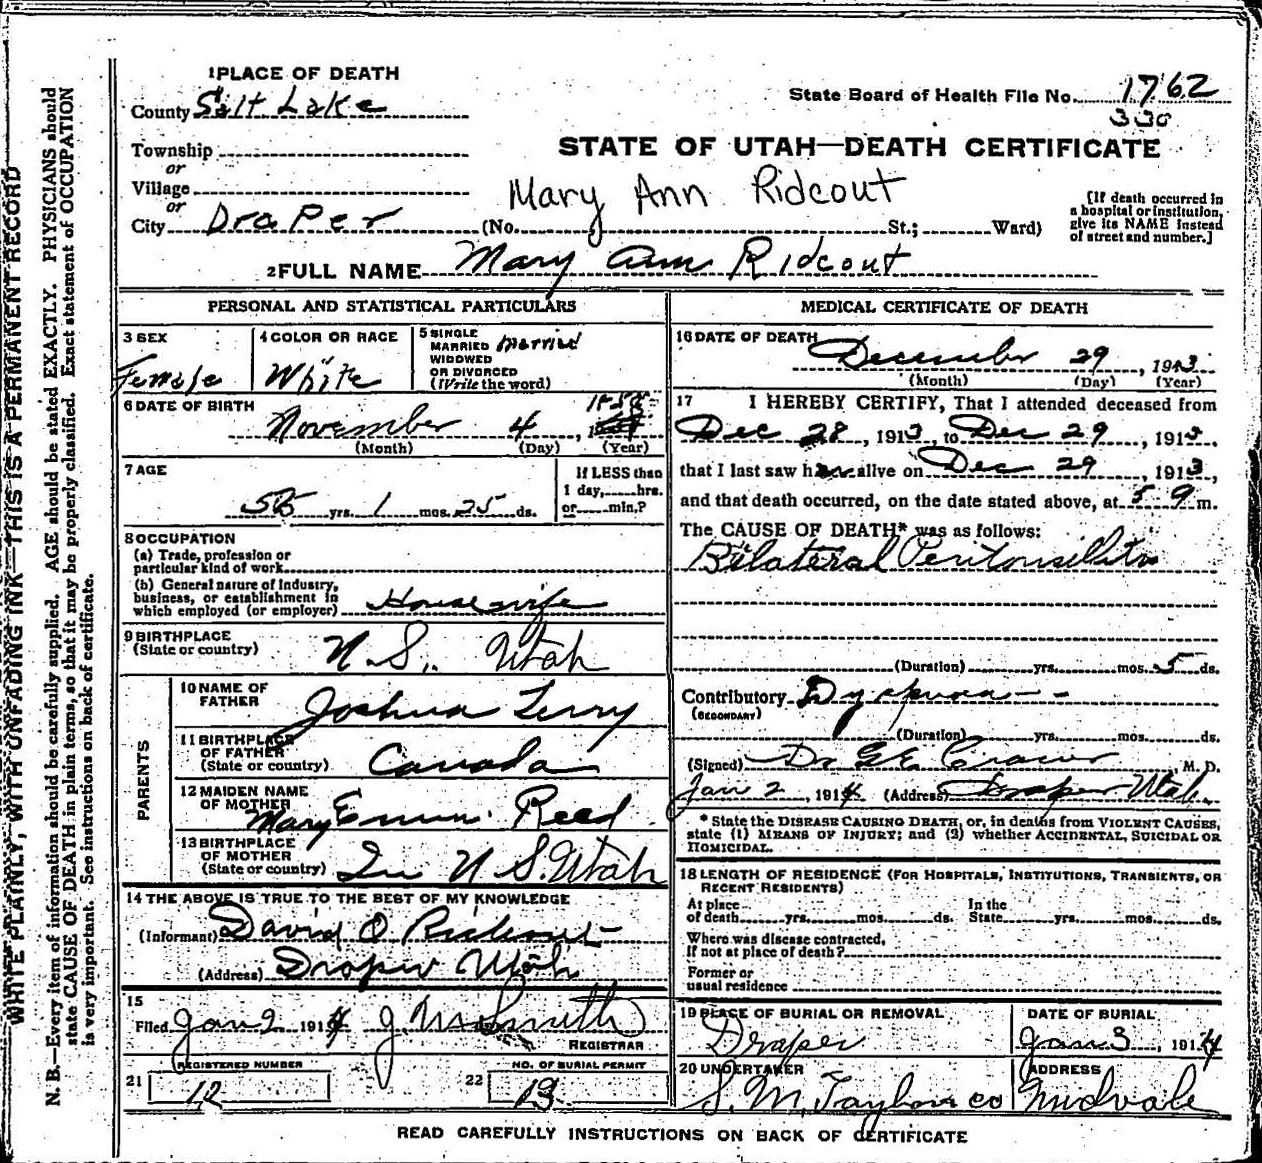 1 PLACE OF DEATH
County Salt Lake
State Board of Health File No. 1762
330
Township
or
Village
or
City Draper
STATE OF UTAH—DEATH CERTIFICATE
Mary Ann Rideout
(No. St.; Ward)
[If death occurred in
a hospital or institution,
give its NAME instead
of street and number.]
2 FULL NAME Mary Ann Rideout
PERSONAL AND STATISTICAL PARTICULARS
3 SEX
Female
4 COLOR OR RACE
White
5 SINGLE
MARRIED
WIDOWED
OR DIVORCED
(Write the word)
Married
6 DATE OF BIRTH
November 4, 1858
(Month) (Day) (Year)
7 AGE
55 yrs. 1 mos. 25 ds.
If LESS than
1 day, hrs.
or min.?
8 OCCUPATION
(a) Trade, profession or
particular kind of work
(b) General nature of Industry,
business, or establishment in
which employed (or employer) Housewife
9 BIRTHPLACE
(State or country)
U.S. Utah
PARENTS
10 NAME OF
FATHER
Joshua Terry
11 BIRTHPLACE
OF FATHER
(State or country)
Canada
12 MAIDEN NAME
OF MOTHER
Mary Reed
13 BIRTHPLACE
OF MOTHER
(State or country)
U S. Utah
14 THE ABOVE IS TRUE TO THE BEST OF MY KNOWLEDGE
(Informant) David O Rideout
(Address) Draper Utah
15
Filed Jan 2 1914 J. M. Smith
REGISTRAR
REGISTERED NUMBER
21 12
NO. OF BURIAL PERMIT
22 13
MEDICAL CERTIFICATE OF DEATH
16 DATE OF DEATH
December 29, 1913
(Month) (Day) (Year)
17 I HEREBY CERTIFY, That I attended deceased from
Dec 28, 1913, to Dec 29, 1913,
that I last saw her alive on Dec 29 1913,
and that death occurred, on the date stated above, at 5 m.
The CAUSE OF DEATH* was as follows:
Bilateral Peritonsillitis
(Duration) yrs. mos. 5 ds.
Contributory
(SECONDARY)
(Duration) yrs. mos. ds.
(Signed) Dr M. D.
Jan 2, 1914 (Address) Draper Utah.
* State the DISEASE CAUSING DEATH, or, in deaths from VIOLENT CAUSES,
state (1) MEANS OF INJURY; and (2) whether ACCIDENTAL, SUICIDAL OR
HOMICIDAL.
18 LENGTH OF RESIDENCE (FOR HOSPITALS, INSTITUTIONS, TRANSIENTS, OR
RECENT RESIDENTS)
At place
of death yrs. mos. ds.
In the
State yrs. mos. ds.
Where was disease contracted,
If not at place of death?
Former or
usual residence
19 PLACE OF BURIAL OR REMOVAL
Draper
DATE OF BURIAL
Jan 3, 1914
20 UNDERTAKER
S. M. Taylor co
ADDRESS
Midvale
READ CAREFULLY INSTRUCTIONS ON BACK OF CERTIFICATE
WRITE PLAINLY, WITH UNFADING INK—THIS IS A PERMANENT RECORD
N. B.—Every item of information should be carefully supplied. AGE should be stated EXACTLY. PHYSICIANS should
state CAUSE OF DEATH in plain terms, so that it may be properly classified. Exact statement of OCCUPATION
is very important. See instructions on back of certificate.